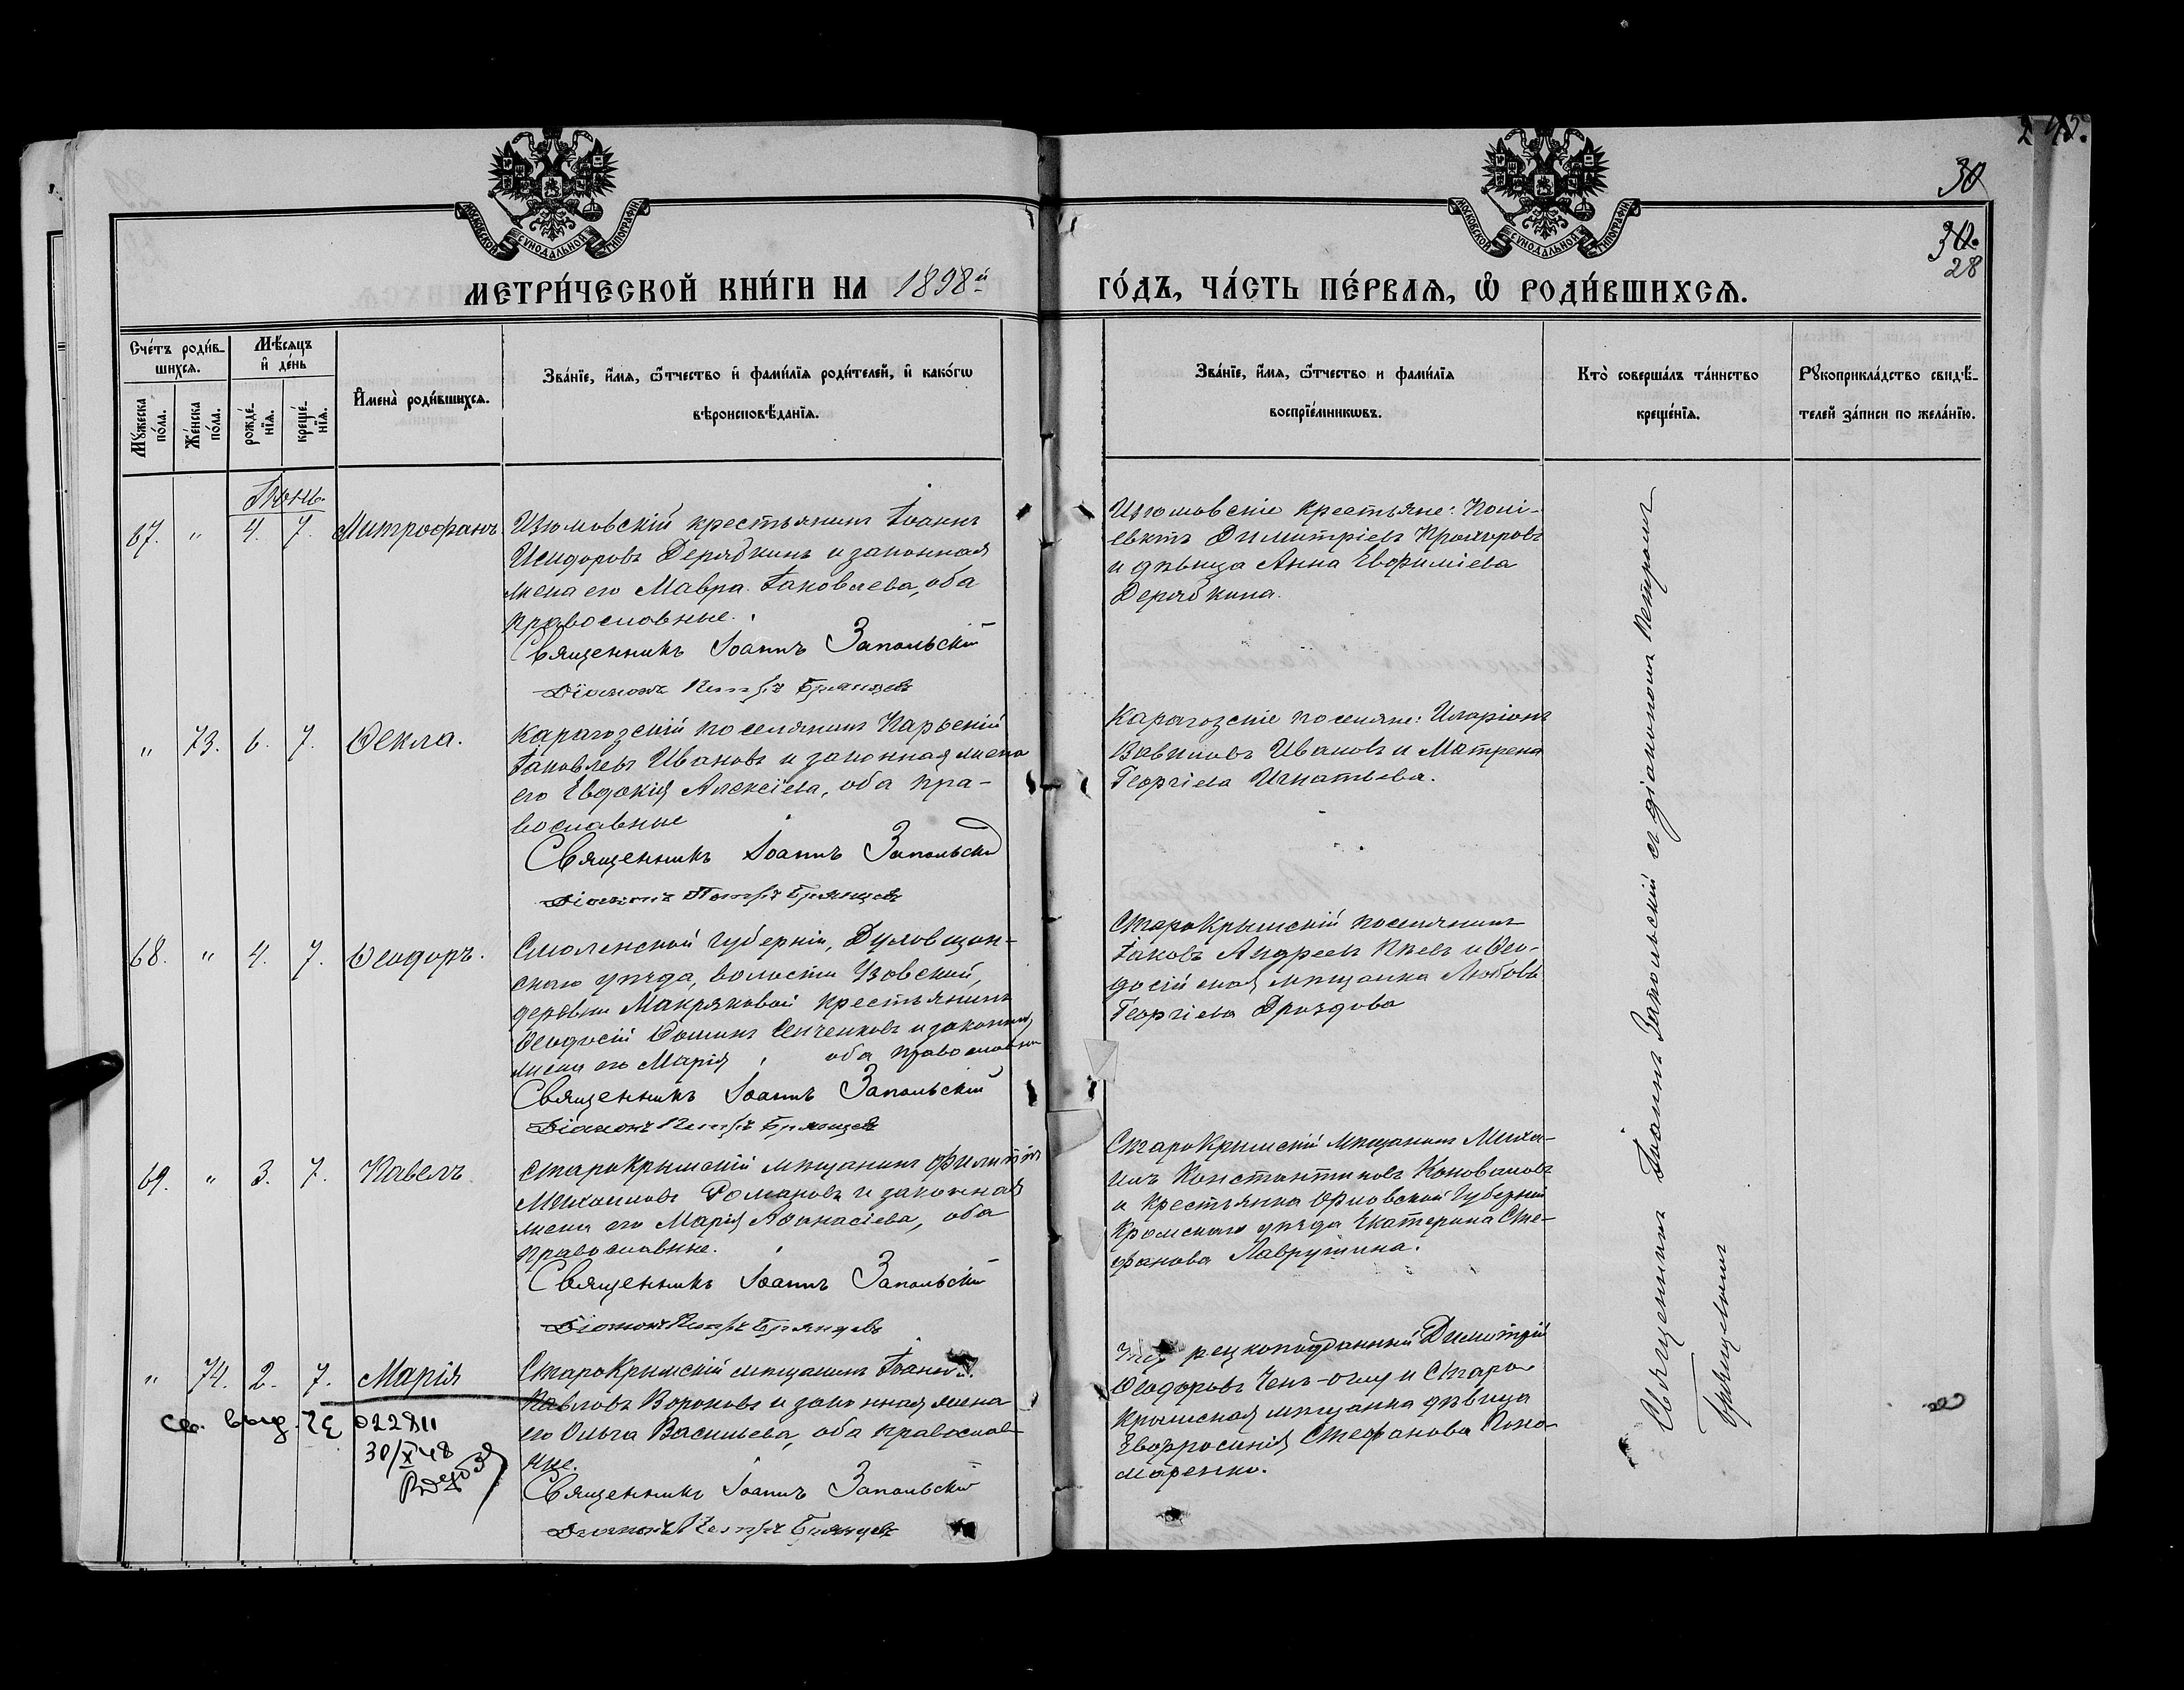 30
30.
28
МОСКОВСКОЙ СѴНОДАЛЬНОЙ ТИПОГРАФІИ
МОСКОВСКОЙ СѴНОДАЛЬНОЙ ТИПОГРАФІИ
МЕТРИ́ЧЕСКОЙ КНИ́ГИ НА 1898й
ГО́ДЪ, ЧА́СТЬ ПЕ́РВАѦ, Ѡ҆ РОДИ́ВШИХСѦ.
Сче́тъ роди́в-
шихсѧ.
Мꙋ́жеска
по́ла.
Же́нска
по́ла.
Мѣ́сѧцъ
и҆ де́нь
рожде́-
нїѧ.
креще́-
нїѧ.
И҆мена̀ роди́вшихсѧ.
Зва́нїе, и҆́мѧ, ѻ҆́тчество и҆ фами́лїѧ роди́телей, и҆ како́гѡ
вѣроисповѣ́данїѧ.
Зва́нїе, и҆́мѧ, ѻ҆́тчество и фами́лїѧ
воспрїе́мникѡвъ.
Кто̀ соверша́лъ та́инство
креще́нїѧ.
Рꙋкоприкла́дство свидѣ́-
телей за́писи по жела́нїю.
Іюнь.
67. " 4. 7. Митрофанъ
Изюмовскій крестьянинъ Іоаннъ
Исидоровъ Дерябкинъ и законная
жена его Мавра Іаковлева, оба
православные.
Священникъ Іоаннъ Запольскій
Діаконъ Петръ Брянцевъ
Изюмовскіе крестьяне: Полі-
евктъ Димитріевъ Прохоровъ
и дѣвица Анна Евфиміева
Дерябкина.
" 73. 6. 7. Ѳекла.
Карагозскій поселянинъ
Іаковлевъ Ивановъ и законная жена
его Евдокія Алексіева, оба пра-
вославные
Священникъ Іоаннъ Запольскій
Діаконъ Петръ Брянцевъ
Карагозскіе поселяне: Иларіонъ
Вавиловъ Ивановъ и Матрена
Георгіева Игнатьева.
68. " 4. 7. Ѳеодоръ.
Смоленской губерніи, Духовщин-
скаго уѣзда, волости
деревни крестьянинъ
Ѳеодосій и законная
жена его Марія оба православные
Священникъ Іоаннъ Запольскій
Діаконъ Петръ Брянцевъ
Старокрымскій поселянинъ
Іаковъ Андреевъ и Ѳео-
досійская мѣщанка Любовь
Георгіева Дроздова
69. " 3. 7. Павелъ
Старокрымскій мѣщанинъ Филиппъ
Михаиловъ Романовъ и законная
жена его Марія Аѳанасіева, оба
православные.
Священникъ Іоаннъ Запольскій
Діаконъ Петръ Брянцевъ
Старокрымскій мѣщанинъ Миха-
илъ Константиновъ Коноваловъ
и крестьянка Орловской губерніи
Кромскаго уѣзда Екатерина Сте-
фанова Лаврушина.
" 74. 2. 7. Марія
Старокрымскій мѣщанинъ Іоаннъ
Павловъ Вороновъ и законная жена
его Ольга Васильева, оба православ-
ные.
Священникъ Іоаннъ Запольскій
Діаконъ Петръ Брянцевъ
Димитрій
Ѳеодоровъ и Старо-
крымская мѣщанка дѣвица
Евфросинія Стефанова Поно-
маренко.
св. выд. ЧЕ 022811
30/X 48
Священникъ Іоаннъ Запольскій съ діакономъ Петромъ
Брянцевымъ